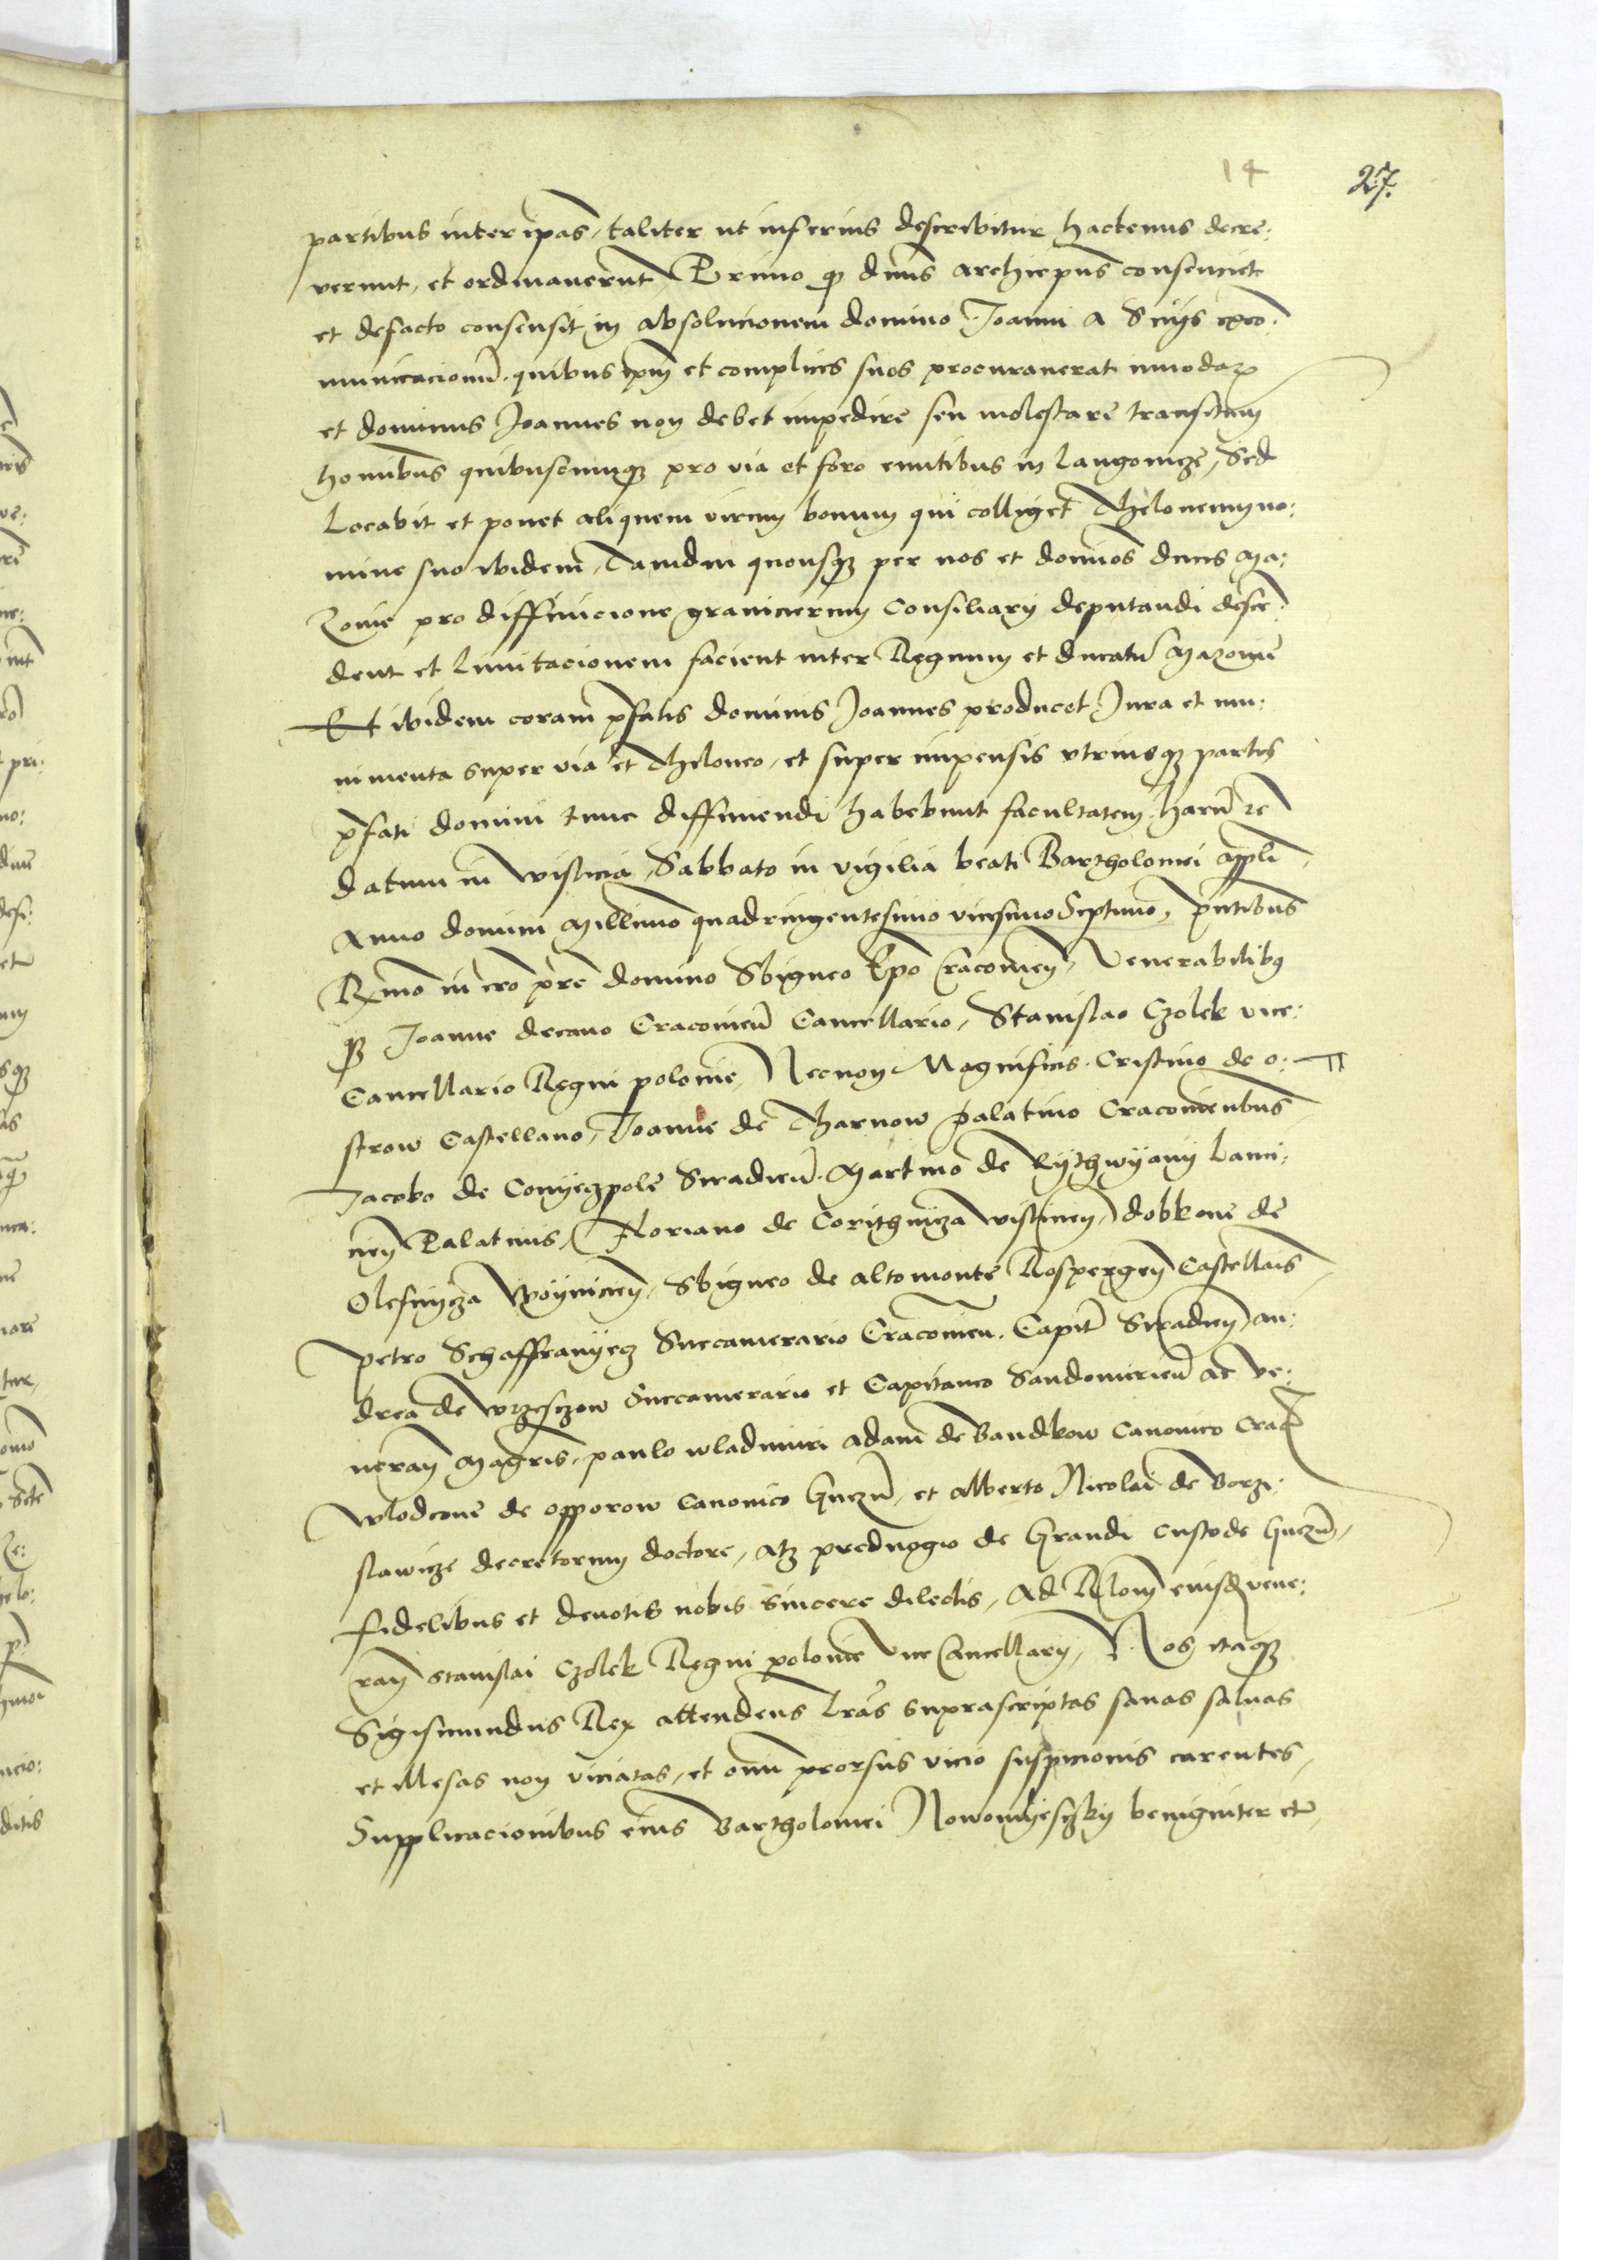 14
27.
partibus inter ipas, taliter ut inferius describitur hactenus decre:
verunt, et ordinaverunt Primo q dnus archiepus consenciet
et defacto consensit in absolucionem domino Joanni a Snijs exco:
municacionu. quibus ipm et complices suos procuraverat innodari
et dominus Joannes non debet impedire seu molestare transitum
hominbus quibuscunq pro via et foro euntibus in Langonicze, Sed
Locabit et ponet aliquem virum bonum qui colliget Theloneum no:
mine suo ibidem, Tamdiu quousq per nos et dominos duces Ma:
zovie pro diffinicione granicierum Consiliarij deputandi desce:
dent et limitacionem facient inter Regnum et ducatu Mazovie
Et ibidem coram pfatis dominis Joannes producet Jura et mu:
nimenta super via et Theloneo, et super impensis utriusq partis
pfati domini tunc diffiniendi habebunt facultatem. harum re
datum in Wislicia, Sabbato in vigilia beati Bartholomei appli
Anno domini Millimo quadringentesimo vicesimo Septimo, pntibus
Rxmo in cro pre domino Sbigneo Epo Cracovien, Venerabilibus
q Joanne decano Cracovien Cancellario, Stanislao Czolek vice:
Cancellario Regni polonie, Necnon Magnificis. Cristino de o:
strow Castellano, Joanne de Tharnow palatino Cracovienbus
Jacobo de Conyeczpole Siradien. Martino de Rythwyany Lanci:
cien Palatinis, Floriano de Corithnicza Wislicien, dobkone de
Olesnycza Woynicien, Sbigneo de altomonte Rospergen Castellais
Petro Schaffranyecz Succamerario Cracovien. Capit Siradien, an:
drea de Wrzesczow Succamerario et Capitaneo Sandomirien ac Ve:
neran Magris, paulo wladimiri adam de Bandkow Canonico Crac
Wlodcone de Opporow Canonico Gnezn, et Alberto Nicolai de Borzi:
slawicze decretorum doctore, atq predwogio de Grandi Custode Gnezn,
fidelibus et devotis nobis sincere dilectis, Ad Rlom eiusd vene:
ran Stanislai Czolek Regni polonie vice Cancellarij, Nos itaq
Sigismundus Rex attendens Lras suprascriptas sanas salvas
et illesas non viciatas, et omi prorsus vicio suspicionis carentes,
Supplicacionibus eius Bartholomei Nowomyesczky benigniter et